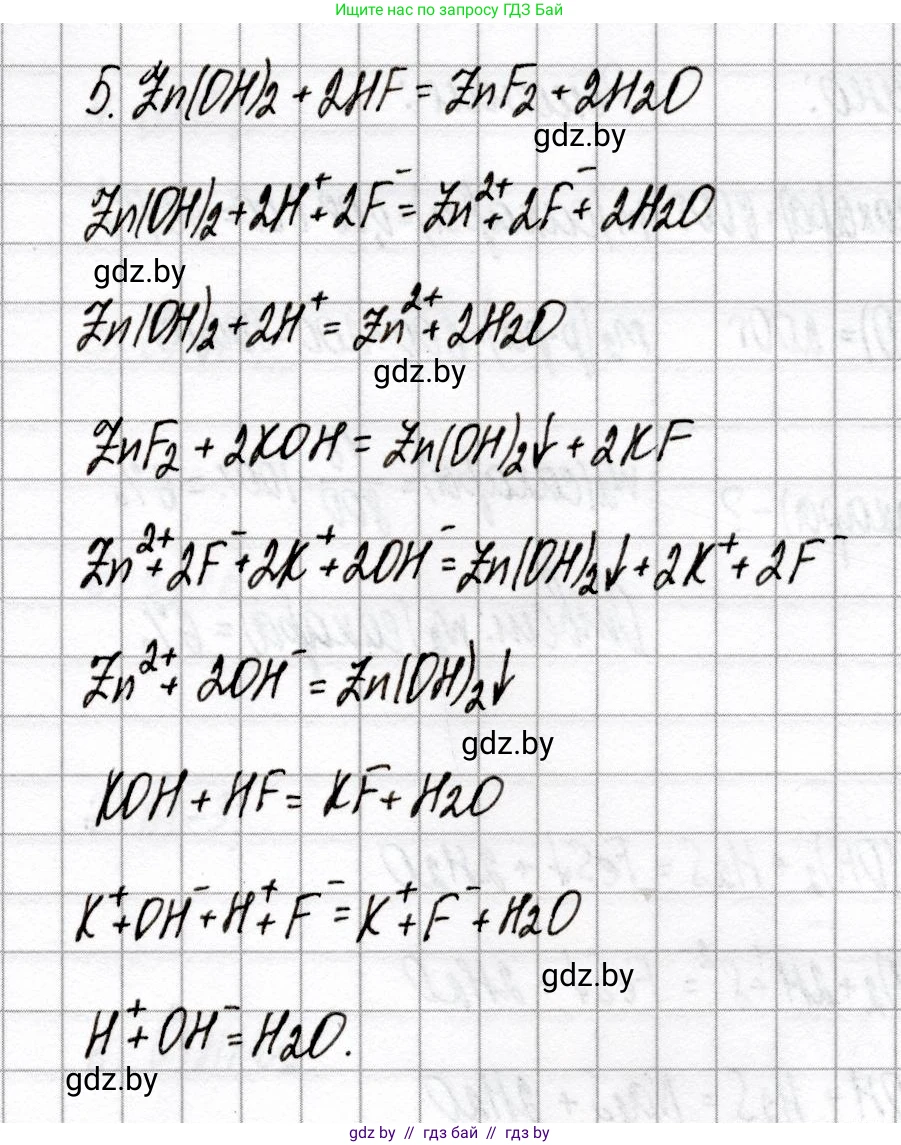 Ищите нас по запросу ГДЗ Бай
5. Zn(OH)2 + 2HF = ZnF2 + 2H2O
gdz.by
Zn(OH)2 + 2H⁺ + 2F⁻ = Zn²⁺ + 2F⁻ + 2H2O
gdz.by
Zn(OH)2 + 2H⁺ = Zn²⁺ + 2H2O
gdz.by
ZnF2 + 2KOH = Zn(OH)2↓ + 2KF
Zn²⁺ + 2F⁻ + 2K⁺ + 2OH⁻ = Zn(OH)2↓ + 2K⁺ + 2F⁻
Zn²⁺ + 2OH⁻ = Zn(OH)2↓
gdz.by
KOH + HF = KF + H2O
K⁺ + OH⁻ + H⁺ + F⁻ = K⁺ + F⁻ + H2O
gdz.by
H⁺ + OH⁻ = H2O.
gdz.by
gdz.by // гдз бай // гдз by